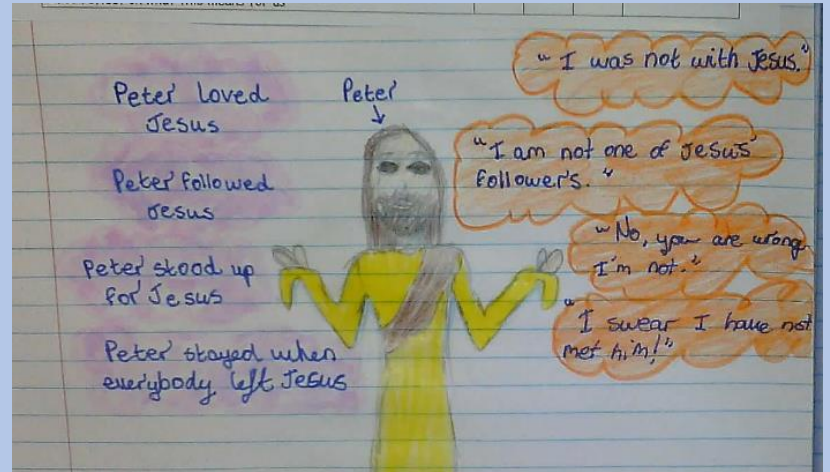 Peter loved
Jesus
Peter followed
Jesus
Peter stood up
for Jesus
Peter stayed when
everybody left Jesus
Peter
"I was not with Jesus."
"I am not one of Jesus'
follower's."
"No, you are wrong
I'm not."
"I swear I have not
met him!"